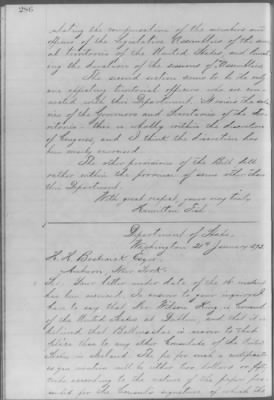 286
relating the compensation of the members and
officers of the Legislative Assemblies of the several
territories of the United States, and limiting
the duration of the sessions of Assemblies.
The second section seems to be the only
one affecting territorial officers who are connected
with this Department. It raises the salaries
of the Governors and Secretaries of the Territories
this is wholly within the discretion
of Congress, and I think the discretion has
been wisely exercised.
The other provisions of the Bill fall
rather within the province of some other than
this Department.
With great respect, yours very truly,
Hamilton Fish
Department of State,
Washington 21st January 1873.
Esqre.
Auburn, New York.
Sir: Your letter under date of the 16 instant
has been received. In answer to your inquiry I
have to say that Mr. Wilson King is Consul
of the United States at Dublin, and that it is
believed that is nearer to that
place than to any other Consulate of the United
States in Ireland. The fee for such a certificate
as you mention will be either two dollars or fifty
cents according to the nature of the paper presented
for the Consul's signature of which the